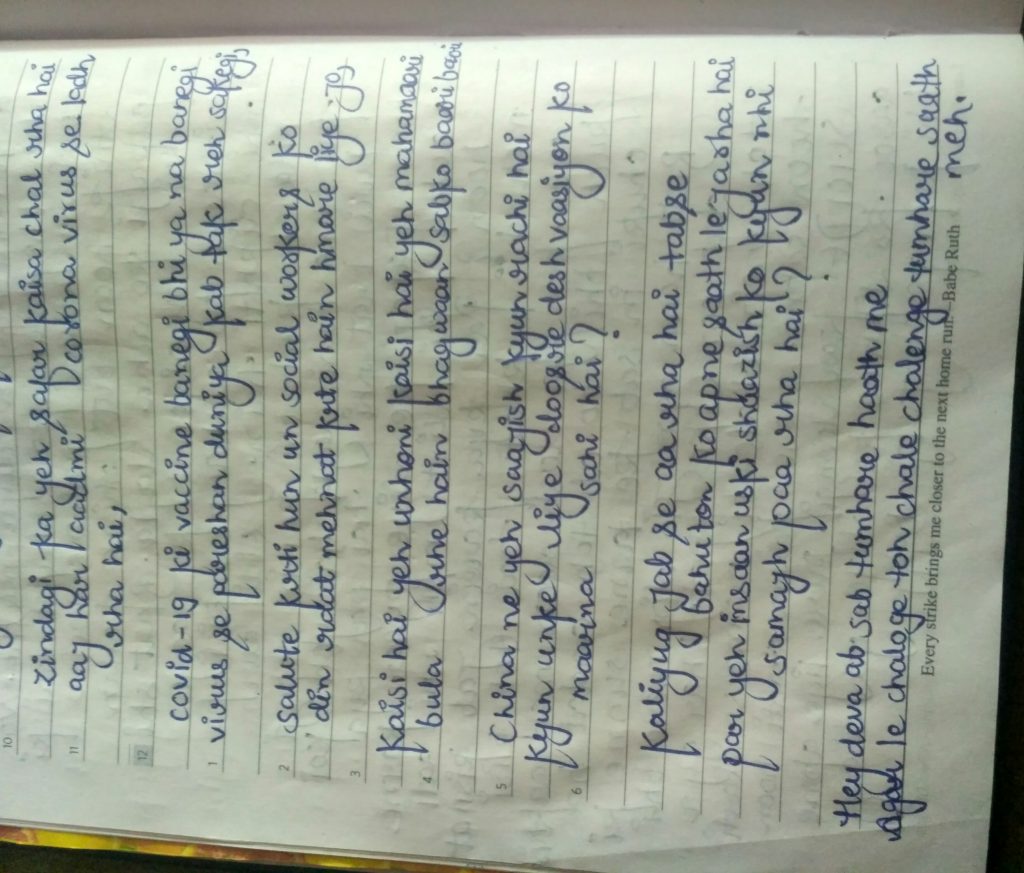 10
zindagi ka yeh safar kaisa chal rha hai
11
aaj har aadmi corona virus se ladh
rha hai,
12
covid-19 ki vaccine banegi bhi ya na banegi
1
virus se pareshan duniya kab tak reh sakegi,
2
salute krti hun un social workers ko
din raat mehnat krte hain hmare liye jo
3
Kaisi hai yeh unhoni kaisi hai yeh mahamaari
4
bula rhe hain bhagwaan sabko baari baari
5
China ne yeh saajish kyun rachi hai
Kyun unke liye doosre deshvaasiyon ko
6
maarna sahi hai?
Kaliyug jab se aa rha hai tabse
bahuton ko apne saath le ja rha hai
par yeh insaan uski sharish ko kyun nhi
samajh paa rha hai?
Hey deva ab sab tumhare haath me
agar le chaloge toh chale chalenge tumhare saath
meh.
Every strike brings me closer to the next home run. Babe Ruth